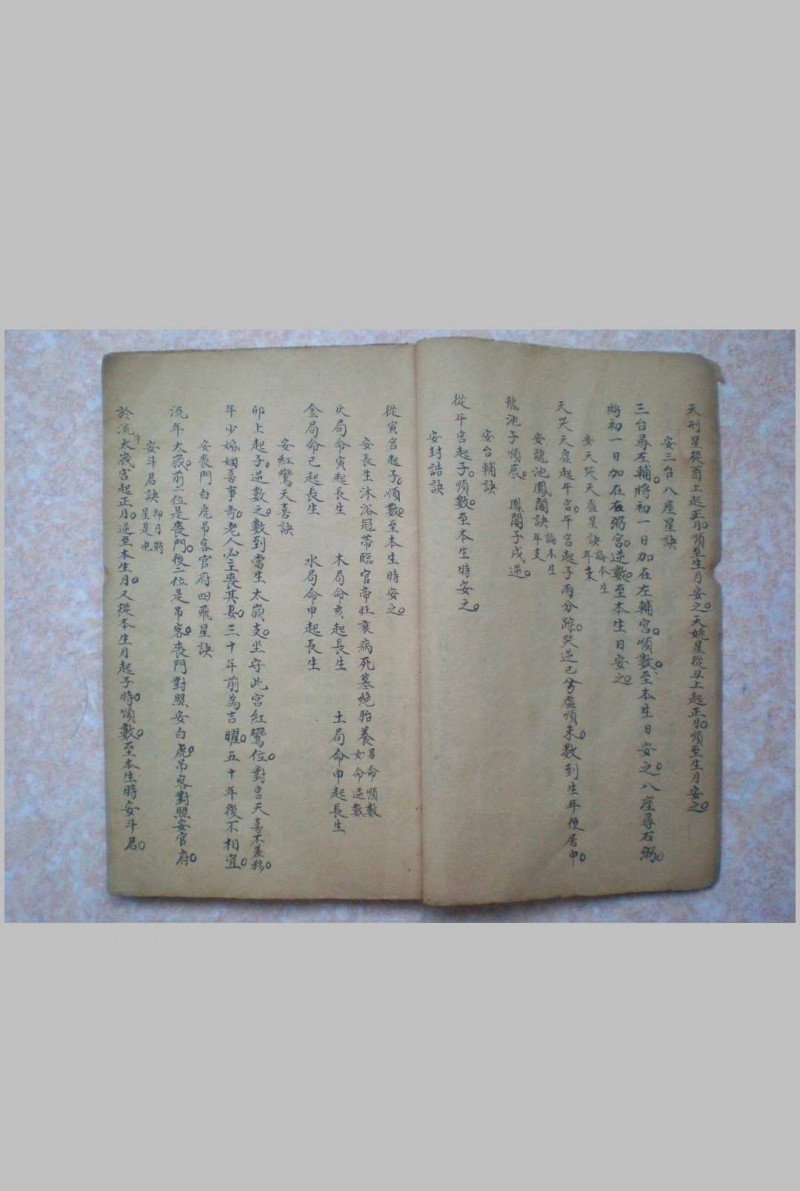 天刑星從酉上起正月。順至生月安之。天姚星從丑上起正月。順至生月安之。
安三台八座星訣
三台尋左輔。將初一日加在左輔宮。順數至本生日安之。八座尋右弼。
將初一日加在右弼宮。逆數至本生日安之。
安天哭天虛星訣 論本生年支
天哭天虛起午宮。午宮起子兩分踪。哭逆巳兮虛順未。數到生年便居中。
安龍池鳳閣訣 論本生年支
龍池子順辰。 鳳閣子戌逆。
安台輔訣
從午宮起子。順數至本生時安之。
安封誥訣
從寅宮起子。順數至本生時安之。
安長生沐浴冠帶臨官帝旺衰病死墓絕胎養 男命順數 女命逆數
火局命寅起長生 木局命亥起長生 土局命申起長生
金局命巳起長生 水局命申起長生
安紅鸞天喜訣
卯上起子。逆數之。數到當生太歲支。坐守此宮紅鸞位。對宮天喜不差移。
年少婚姻喜事奇。老人必主喪其妻。三十年前為吉曜。五十年後不相宜。
安喪門白虎吊客官府四飛星訣
流年太歲。前二位是喪門。後二位是吊客。喪門對照安白虎。吊客對照安官府。
安斗君訣 即月將星是也
於流太歲宮起正月。逆至本生月。又從本生月起子時。順數至本生時安斗君。